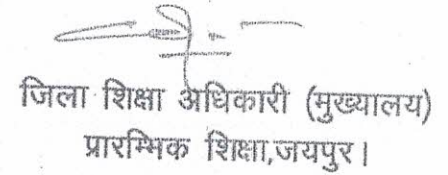 जिला शिक्षा अधिकारी (मुख्यालय)
प्रारम्भिक शिक्षा,जयपुर।